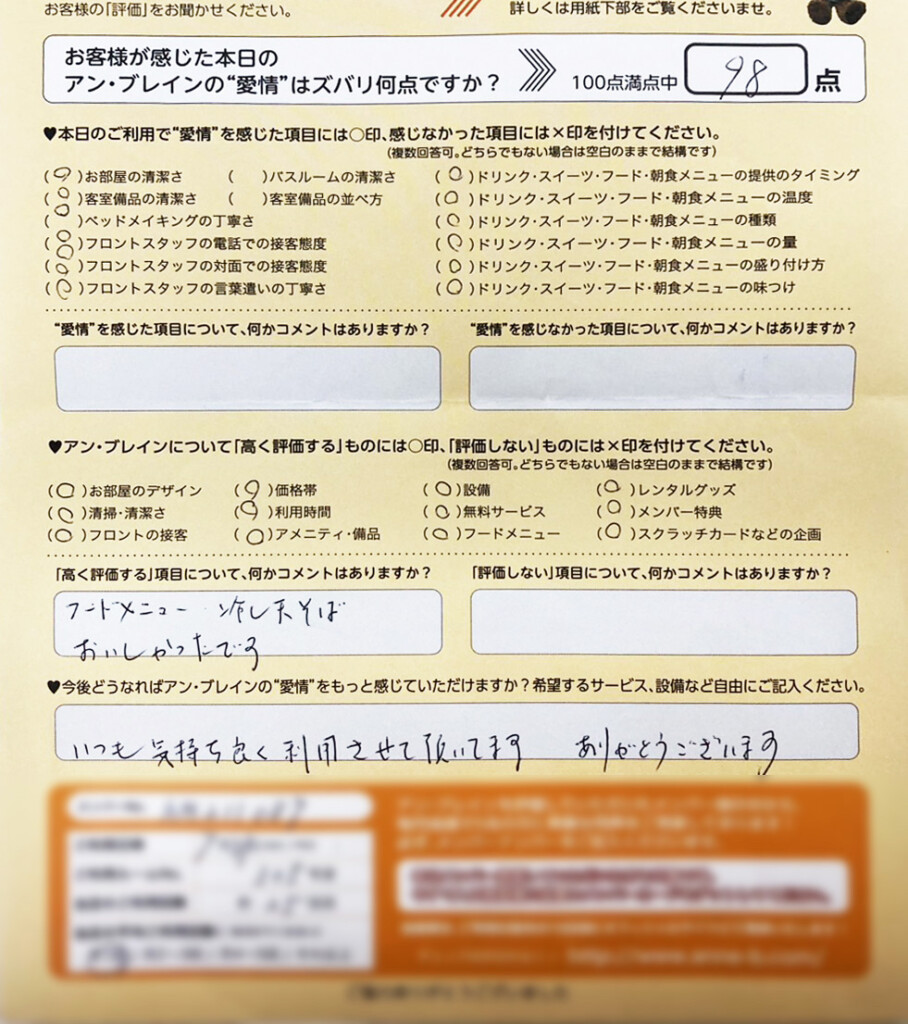 お客様の「評価」をお聞かせください。
詳しくは用紙下部をご覧くださいませ。
お客様が感じた本日の
アン・ブレインの“愛情”はズバリ何点ですか？ 100点満点中 98 点
♥本日のご利用で“愛情”を感じた項目には○印、感じなかった項目には×印を付けてください。
（複数回答可。どちらでもない場合は空白のままで結構です）
(○)お部屋の清潔さ ( )バスルームの清潔さ
(○)客室備品の清潔さ ( )客室備品の並べ方
(○)ベッドメイキングの丁寧さ
(○)フロントスタッフの電話での接客態度
(○)フロントスタッフの対面での接客態度
(○)フロントスタッフの言葉遣いの丁寧さ
(○)ドリンク・スイーツ・フード・朝食メニューの提供のタイミング
(○)ドリンク・スイーツ・フード・朝食メニューの温度
(○)ドリンク・スイーツ・フード・朝食メニューの種類
(○)ドリンク・スイーツ・フード・朝食メニューの量
(○)ドリンク・スイーツ・フード・朝食メニューの盛り付け方
(○)ドリンク・スイーツ・フード・朝食メニューの味つけ
“愛情”を感じた項目について、何かコメントはありますか？
“愛情”を感じなかった項目について、何かコメントはありますか？
♥アン・ブレインについて「高く評価する」ものには○印、「評価しない」ものには×印を付けてください。
（複数回答可。どちらでもない場合は空白のままで結構です）
(○)お部屋のデザイン (○)価格帯 (○)設備 (○)レンタルグッズ
(○)清掃・清潔さ (○)利用時間 (○)無料サービス (○)メンバー特典
(○)フロントの接客 (○)アメニティ・備品 (○)フードメニュー (○)スクラッチカードなどの企画
「高く評価する」項目について、何かコメントはありますか？
フードメニュー 冷し天そば
おいしかったです
「評価しない」項目について、何かコメントはありますか？
♥今後どうなればアン・ブレインの“愛情”をもっと感じていただけますか？希望するサービス、設備など自由にご記入ください。
いつも気持ち良く利用させて頂いてます ありがとうございます